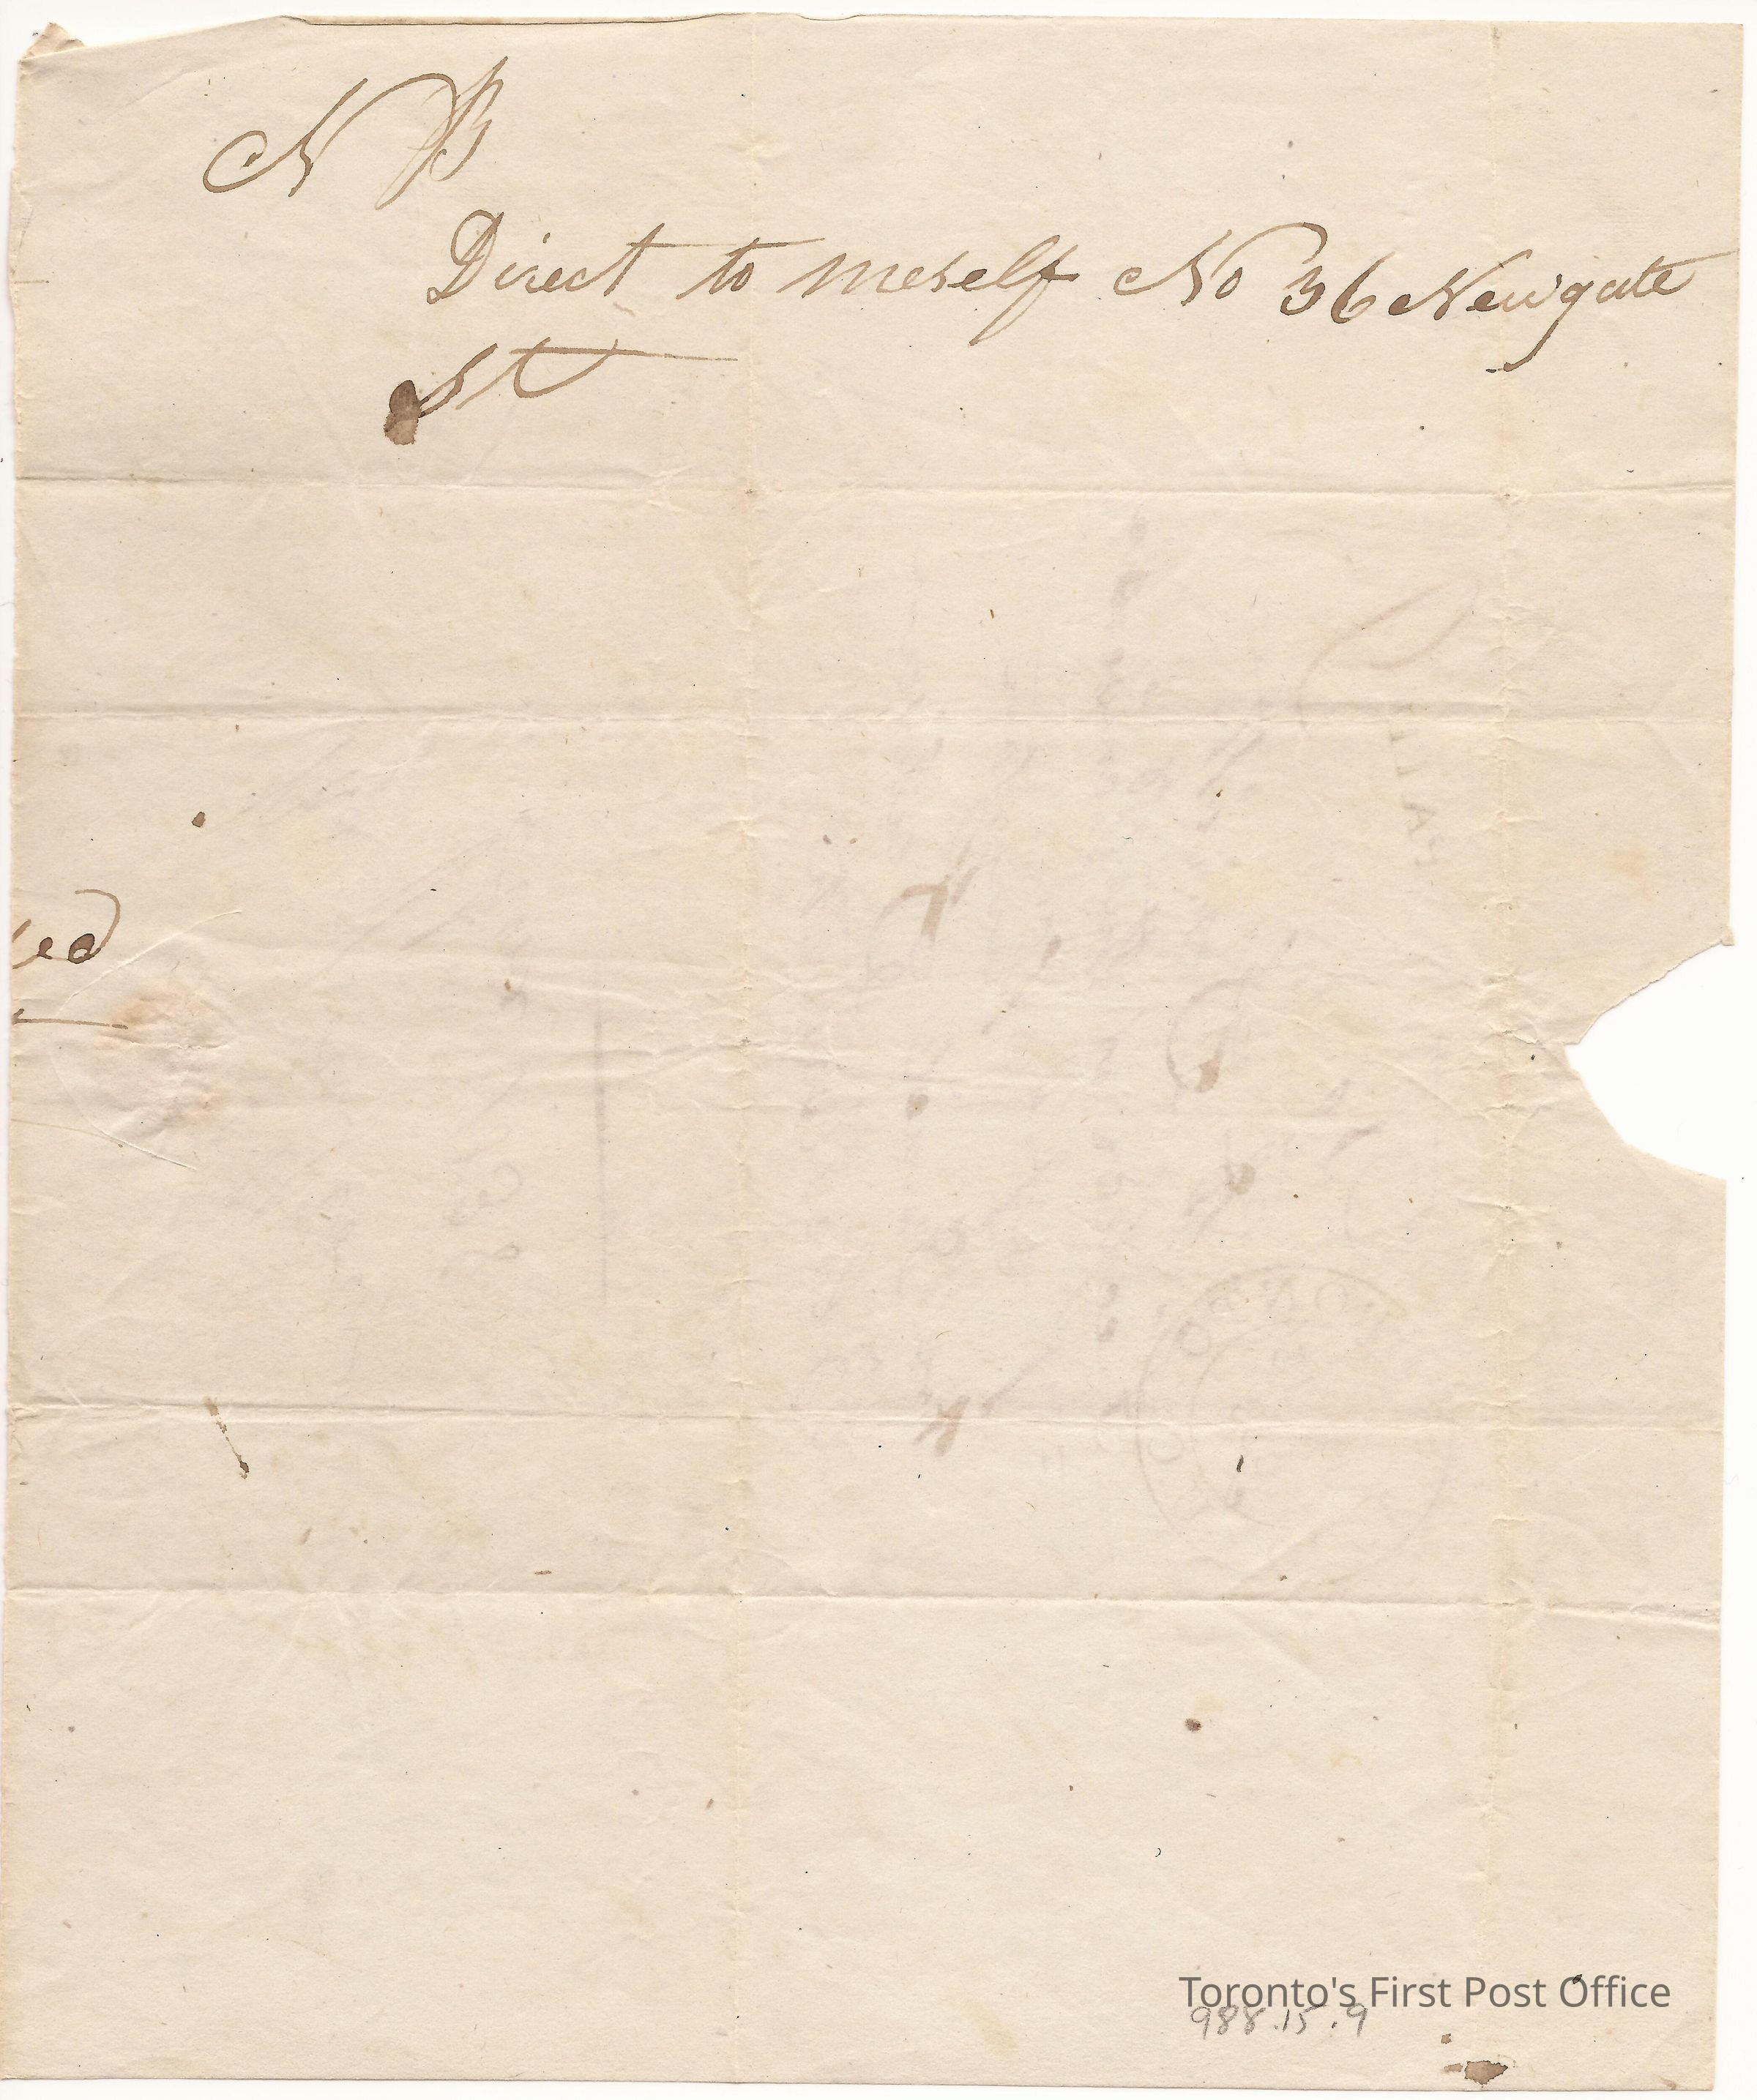 N B
Direct to meself No 36 Newgate
St
ed
Toronto's First Post Office
988.15.9